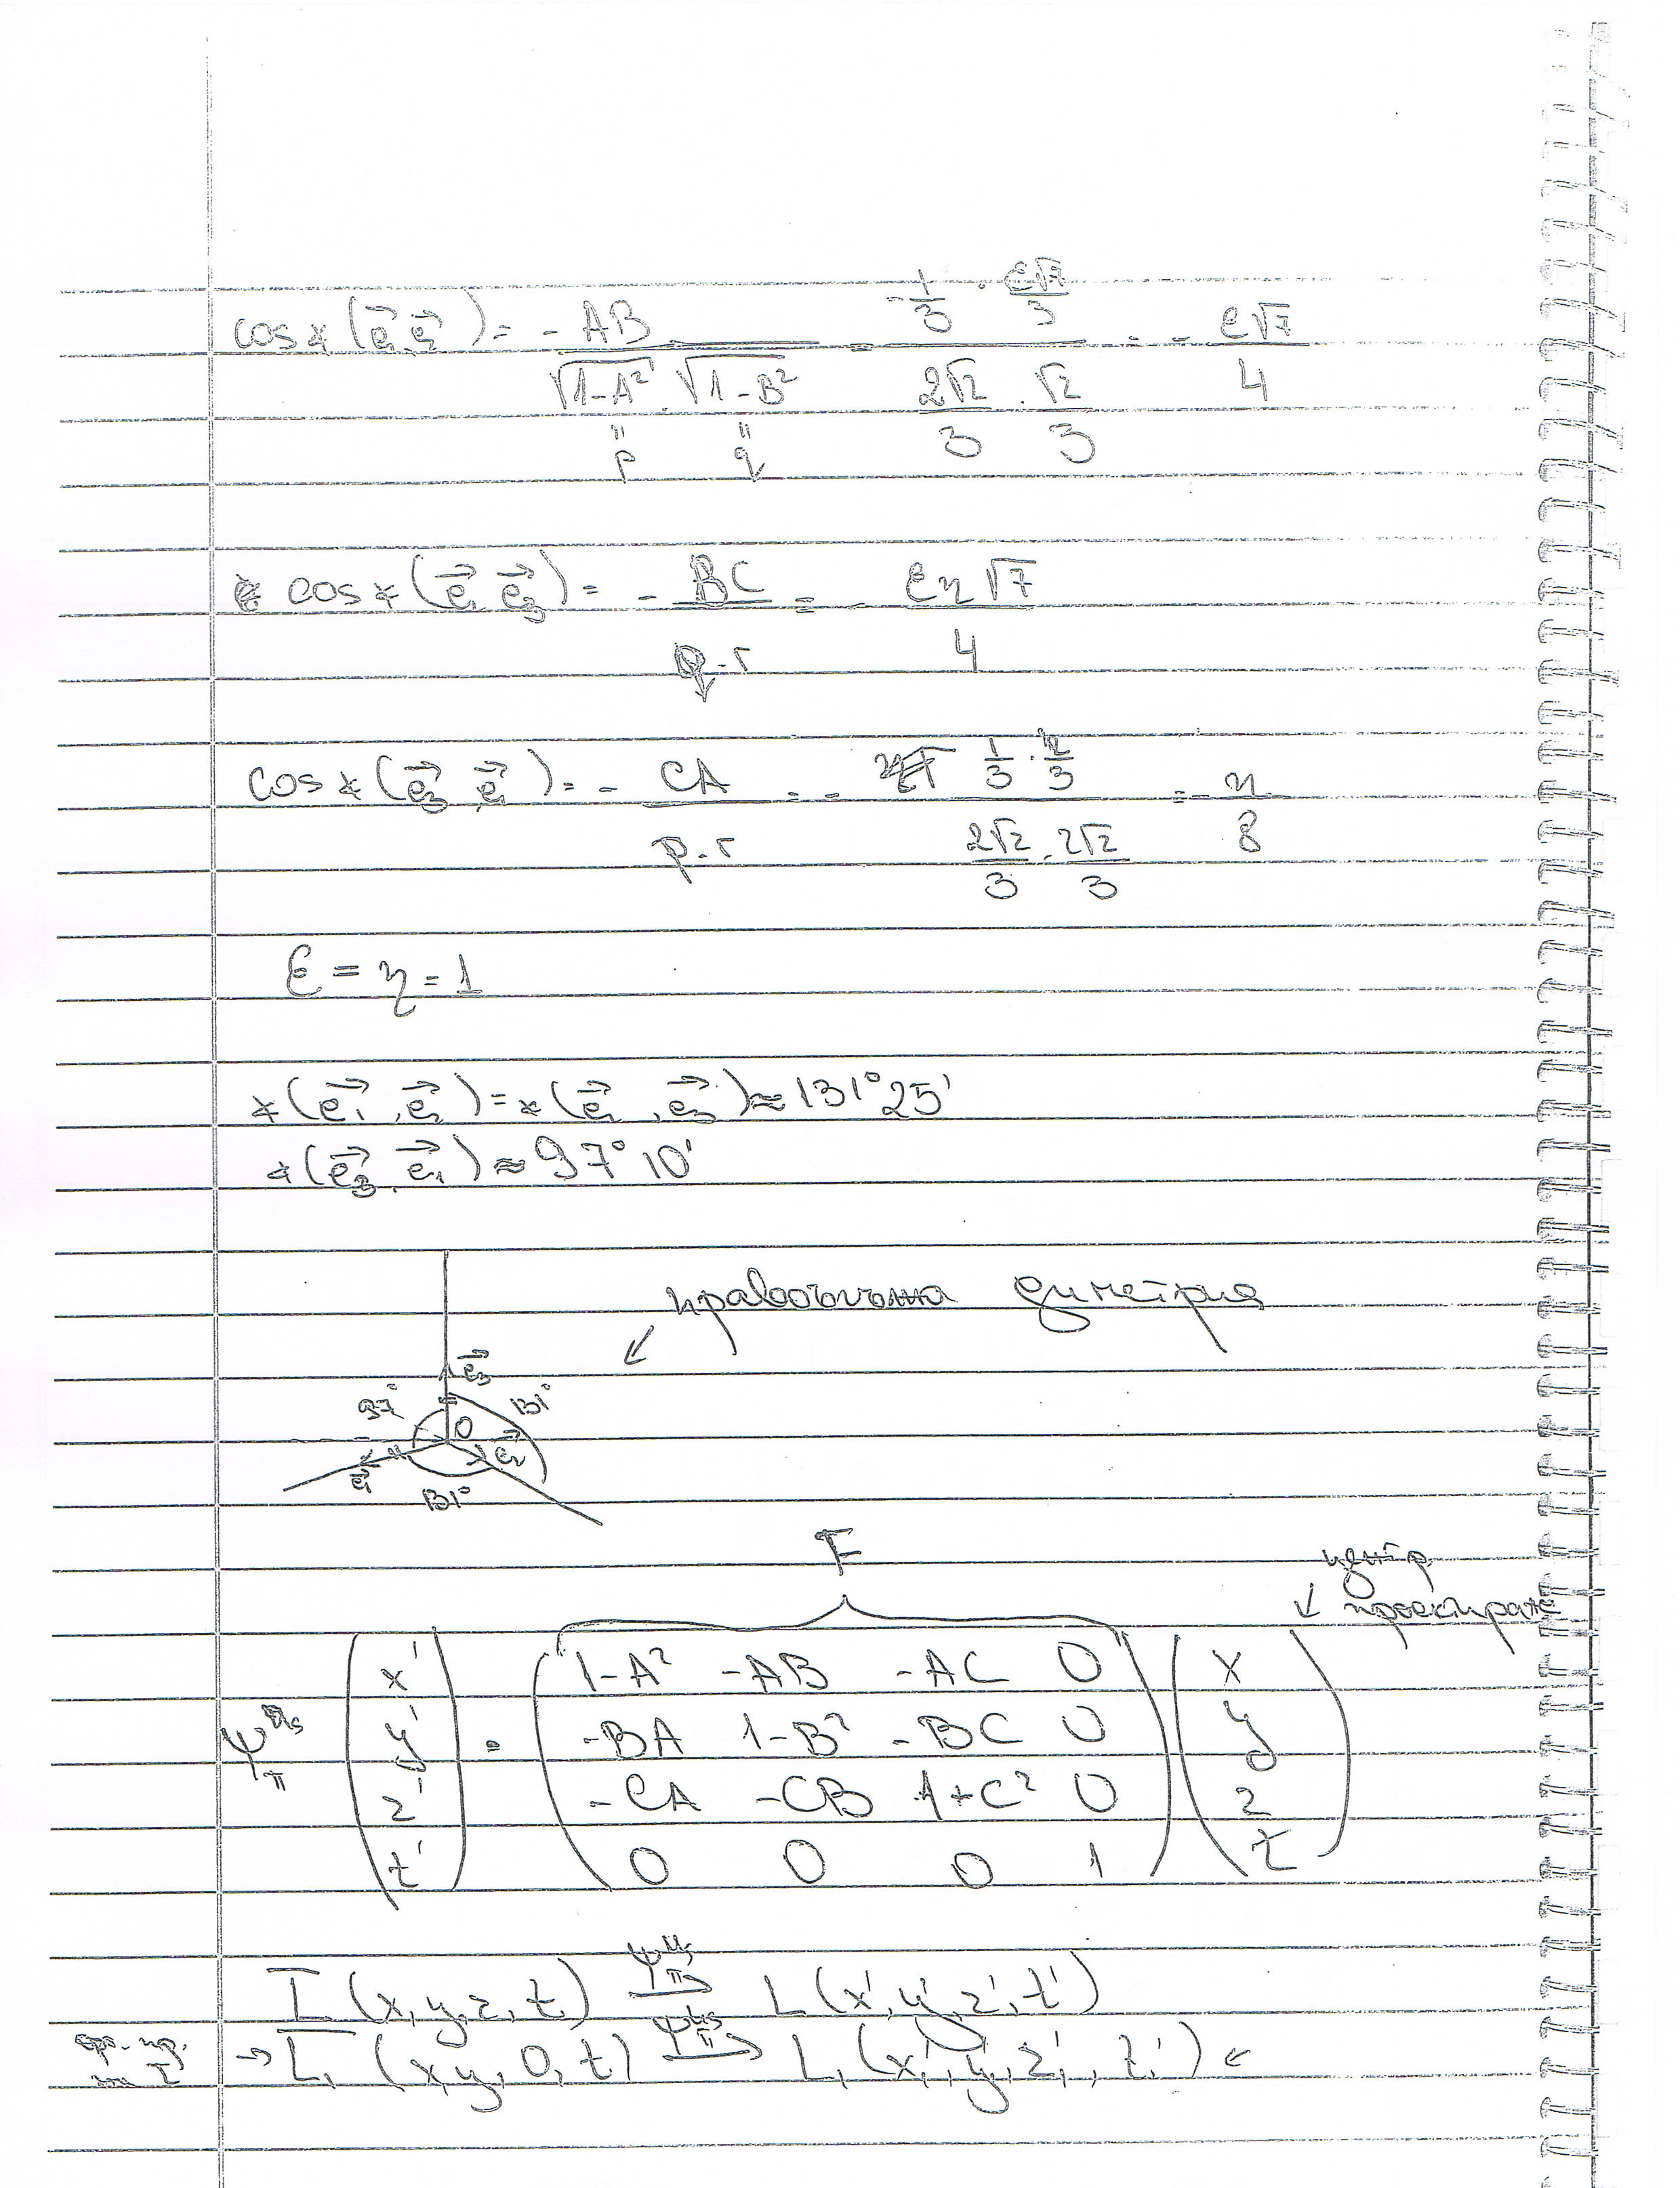 cos∢(e₁⃗ e₂⃗) = - AB / (√(1-A²) . √(1-B²)) = (-1/3 . ε√7/3) / (2√2/3 . √2/3) = - ε√7/4
" p " q
cos∢(e₂⃗, e₃⃗) = - BC / (q.r) = - εη√7/4
cos∢(e₃⃗, e₁⃗) = - CA / (p.r) = - (1/3 . η/3) / (2√2/3 . 2√2/3) = - η/8
ε = η = 1
∢(e₁⃗, e₂⃗) = ∢(e₂⃗, e₃⃗) ≈ 131°25'
∢(e₃⃗, e₁⃗) ≈ 97°10'
правоъгълна диметрия
↙
e₃⃗
97° 131°
O
e₁⃗ e₂⃗
131°
F
центр.
↓ проектиране
x' 1-A² -AB -AC 0 x
ψ_π^Us y' = -BA 1-B² -BC 0 y
z' -CA -CB 1+C² 0 z
t' 0 0 0 1 t
L̅(x,y,z,t) →ψ_π^Us L(x',y',z',t')
орт. пр. на L̅ → L̅₁(x,y,0,t) →ψ_π^Us L₁(x₁',y₁',z₁',t₁') ←